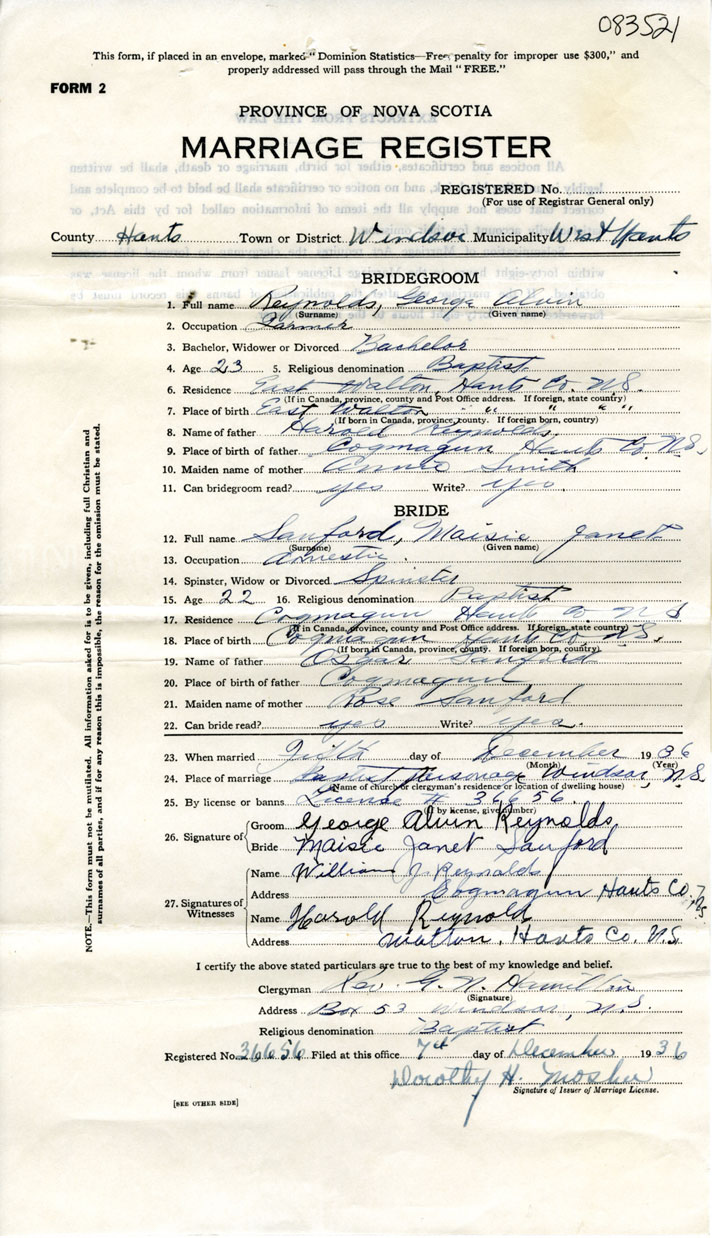 083521
This form, if placed in an envelope, marked "Dominion Statistics—Free, penalty for improper use $300," and
properly addressed will pass through the Mail "FREE."
FORM 2
PROVINCE OF NOVA SCOTIA
MARRIAGE REGISTER
REGISTERED No.
(For use of Registrar General only)
County Hants Town or District Windsor Municipality West Hants
BRIDEGROOM
1. Full name Reynolds, George Alvin
(Surname) (Given name)
2. Occupation Farmer
3. Bachelor, Widower or Divorced Bachelor
4. Age 23 5. Religious denomination Baptist
6. Residence East Walton, Hants Co. N.S.
(If in Canada, province, county and Post Office address. If foreign, state country)
7. Place of birth East Walton " " " "
(If born in Canada, province, county. If foreign born, country)
8. Name of father Harold Reynolds
9. Place of birth of father Cogmagun Hants Co. N.S.
10. Maiden name of mother Annie Smith
11. Can bridegroom read? yes Write? yes
BRIDE
12. Full name Sanford, Maisie Janet
(Surname) (Given name)
13. Occupation Domestic
14. Spinster, Widow or Divorced Spinster
15. Age 22 16. Religious denomination Baptist
17. Residence Cogmagun Hants Co N S
(If in Canada, province, county and Post Office address. If foreign, state country)
18. Place of birth Cogmagun Hants Co. N.S.
(If born in Canada, province, county. If foreign born, country)
19. Name of father Osgar Sanford
20. Place of birth of father Cogmagun
21. Maiden name of mother Rose Sanford
22. Can bride read? yes Write? yes.
23. When married Fifth day of December 1936
(Month) (Year)
24. Place of marriage Baptist Parsonage Windsor, N.S.
(Name of church or clergyman's residence or location of dwelling house)
25. By license or banns License # 36656
(If by license, give number)
26. Signature of Groom George Alvin Reynolds
Bride Maisie Janet Sanford
27. Signatures of Witnesses
Name William J. Reynolds
Address Cogmagun Hants Co. N.S.
Name Harold Reynolds
Address Walton, Hants Co. N.S.
I certify the above stated particulars are true to the best of my knowledge and belief.
Clergyman Rev. G. W. Hamilton
(Signature)
Address Box 53 Windsor, N.S.
Religious denomination Baptist
Registered No. 36656 Filed at this office 7th day of December 1936
Dorothy H. Mosher
Signature of Issuer of Marriage License.
[SEE OTHER SIDE]
NOTE.—This form must not be mutilated. All information asked for is to be given, including full Christian and
surnames of all parties, and if for any reason this is impossible, the reason for the omission must be stated.